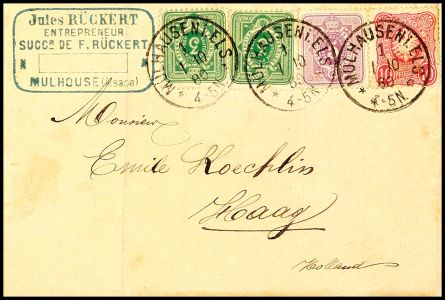 Jules RÜCKERT
ENTREPRENEUR
SUCCR DE F. RÜCKERT
MULHOUSE (Alsace)
MÜLHAUSEN i. ELS
1
10
88
4-5N
MÜLHAUSEN i. ELS
1
10
88
4-5N
MÜLHAUSEN i. ELS
1
10
88
4-5N
5
Monsieur
Emile Koechlin
Haag
Holland